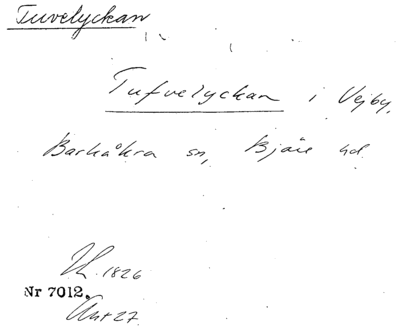 Tuvelyckan
Tufvelyckan i Vejby,
Barkåkra sn, Bjäre hd
1826
Nr 7012.
27